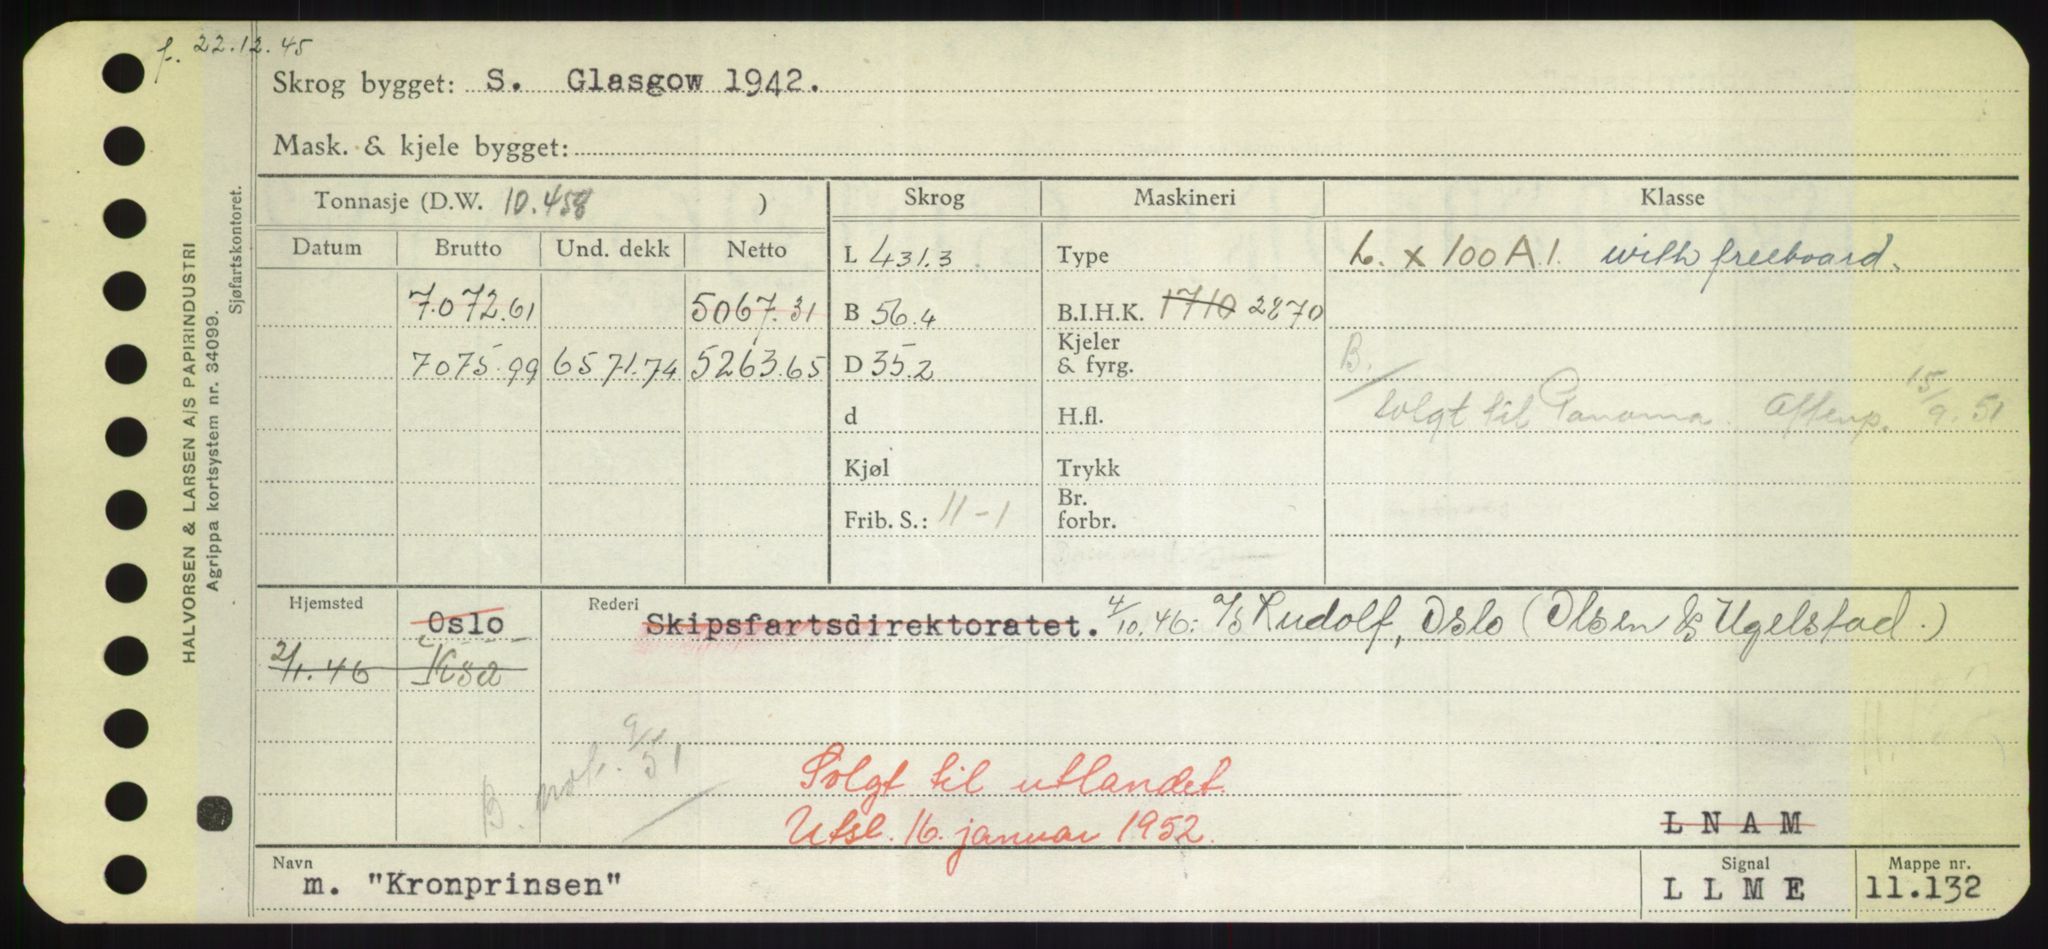 f. 22.12.45
Skrog bygget: S. Glasgow 1942.
Mask. & kjele bygget:
Tonnasje (D.W. 10.458 )
Skrog Maskineri Klasse
Datum Brutto Und. dekk Netto
L 431.3 Type L. x 100 A 1. with freeboard.
7.072.61 5067.31 B 56.4 B.I.H.K. 1710 2870
7075.99 6571.74 5263.65 D 35.2 Kjeler & fyrg. B.
d H.fl. solgt til Panama. Aftenp. 15/9.51
Kjøl Trykk
Frib. S.: 11-1 Br. forbr.
Hjemsted Oslo Rederi Skipsfartsdirektoratet. 4/10.46: A/S Rudolf, Oslo (Olsen & Ugelstad.)
2/1.46
B. not. 9/51
Solgt til utlandet.
Utsl. 16. januar 1952.
L N A M
Navn Signal Mappe nr.
m. "Kronprinsen" L L M E 11.132
HALVORSEN & LARSEN A/S PAPIRINDUSTRI
Agrippa kortsystem nr. 34099.
Sjøfartskontoret.